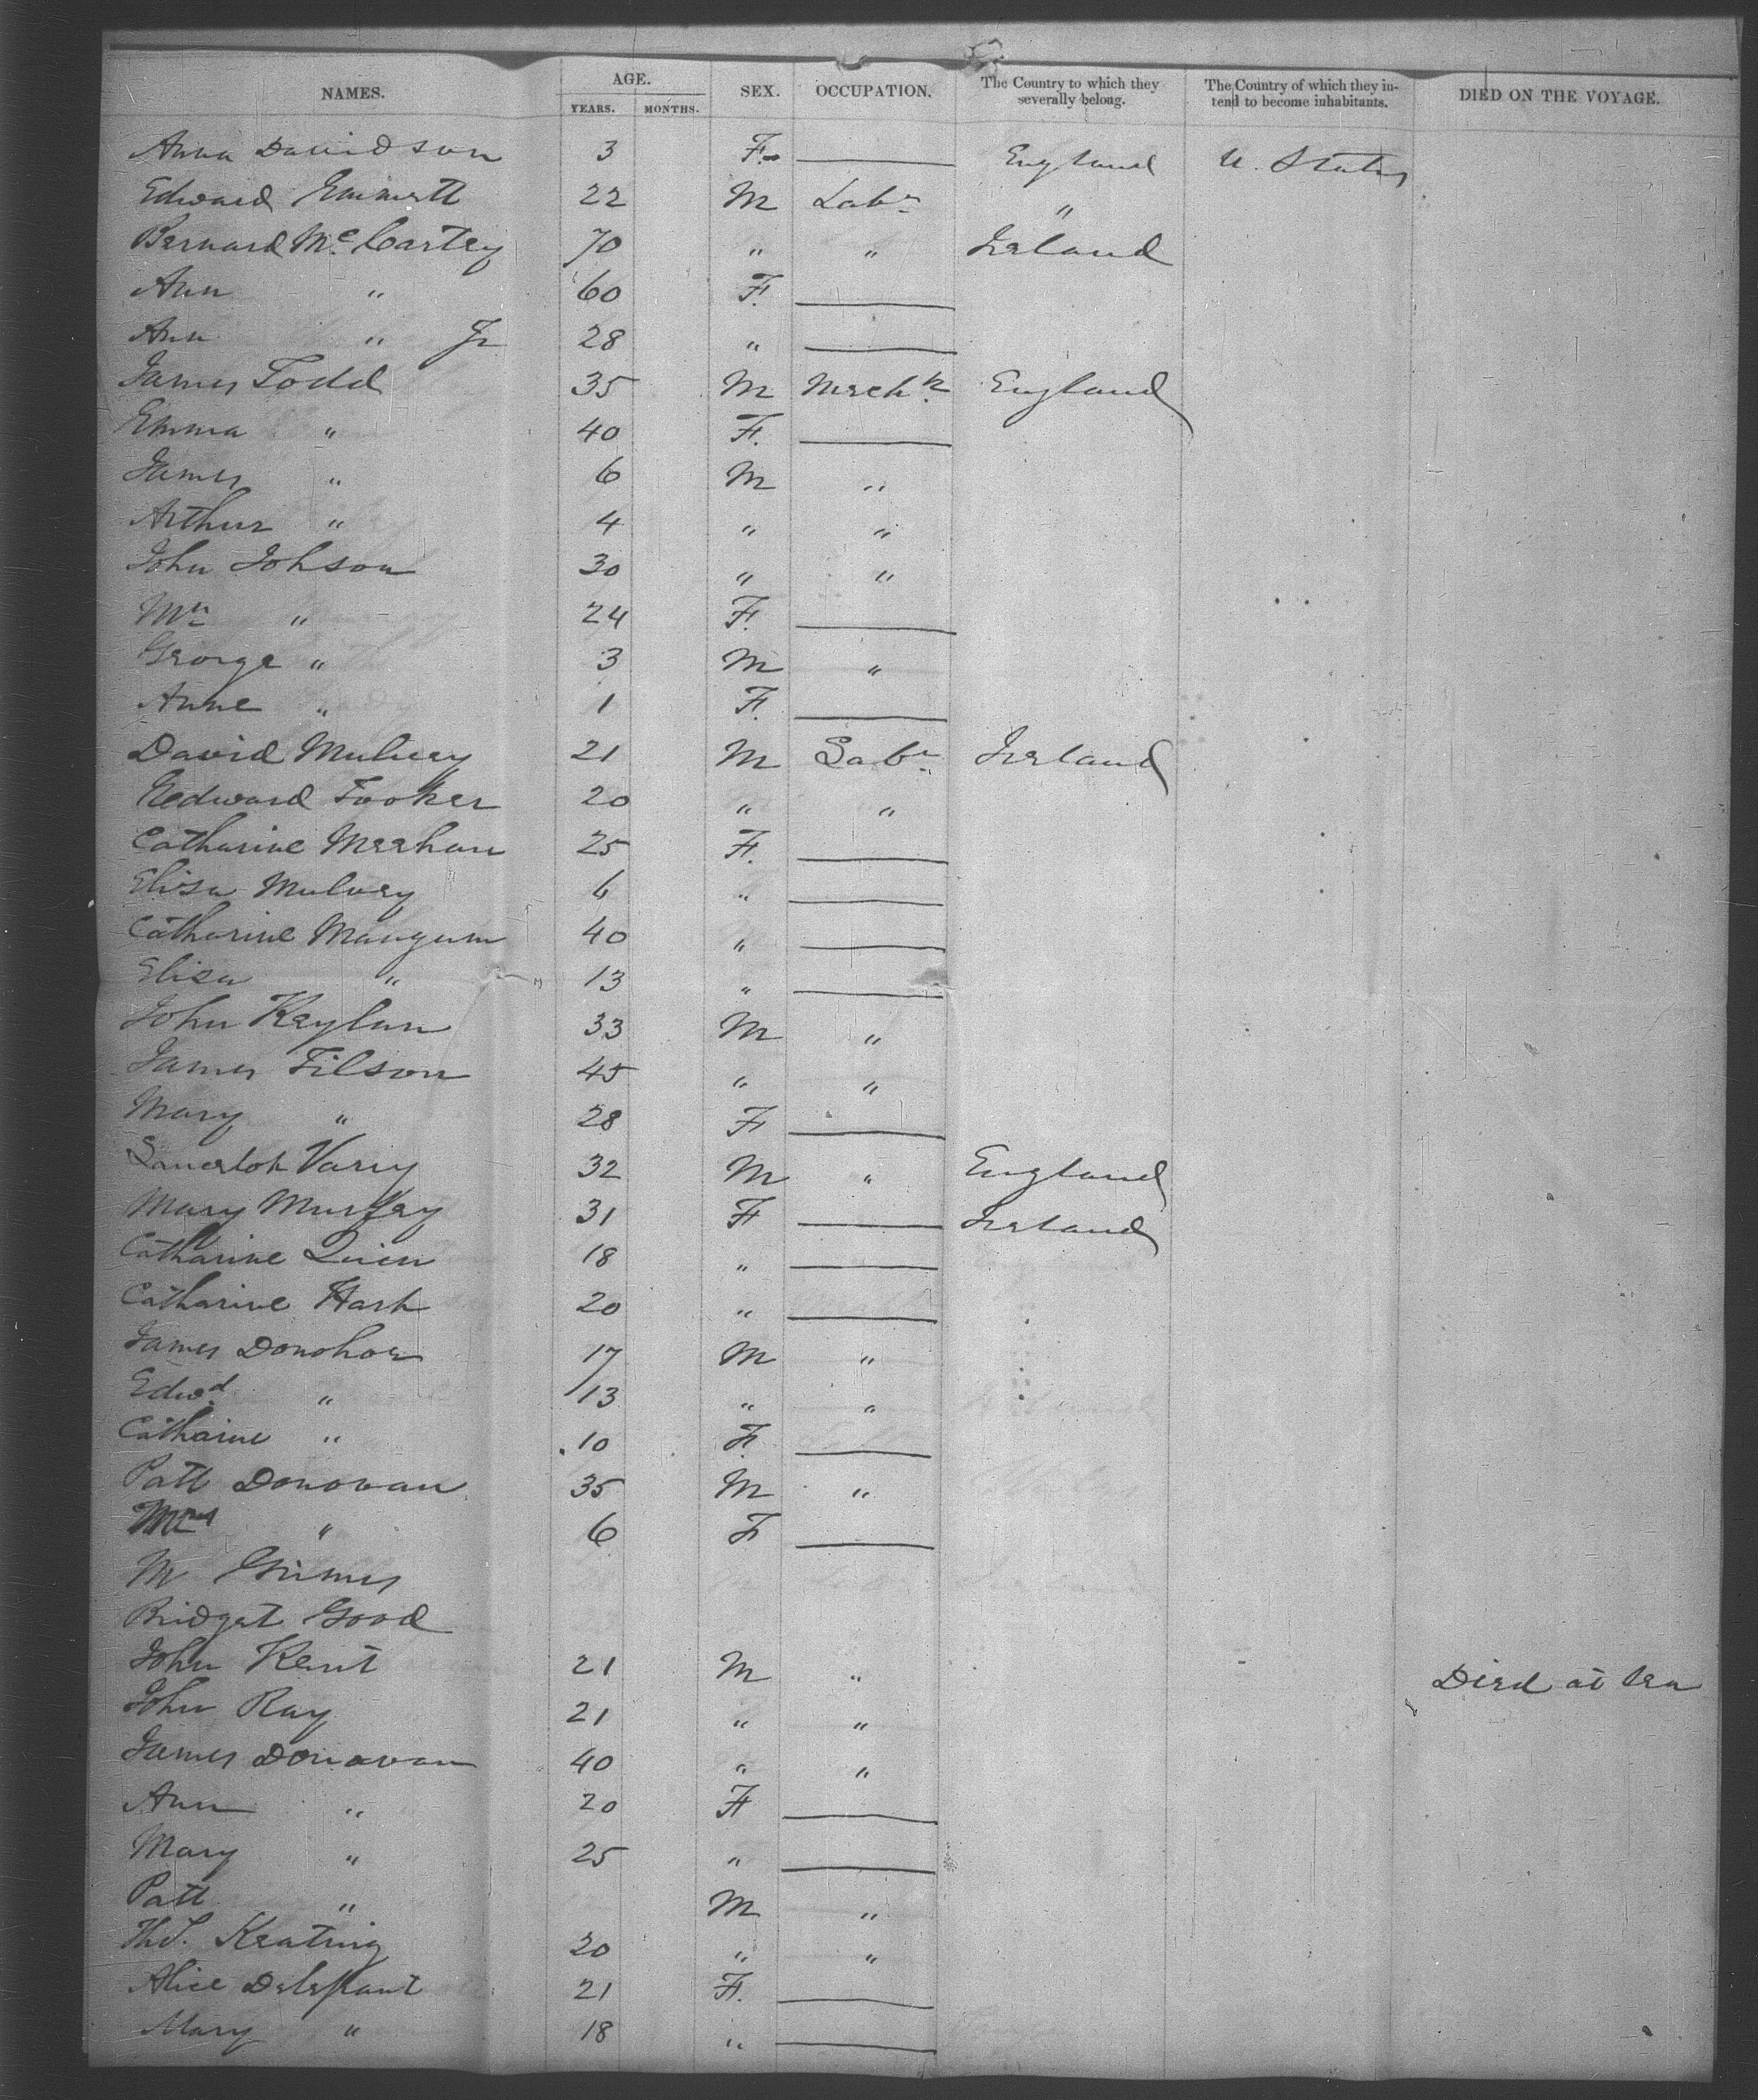 NAMES. AGE. SEX. OCCUPATION. The Country to which they severally belong. The Country of which they intend to become inhabitants. DIED ON THE VOYAGE.
YEARS. MONTHS.
Anna Davidson 3 F. England U. States
Edward Emmett 22 M Labr "
Bernard Mc. Cartey 70 " " Ireland
Ann " 60 F.
Ann " Jr 28 "
James Todd 35 M Mech England
Emma " 40 F.
James " 6 M "
Arthur " 4 " "
John Johson 30 " "
" 24 F.
George " 3 M "
Anne " 1 F.
David Mulvey 21 M Labr Ireland
Nedward Tooker 20 " "
Catharine Meehan 25 F.
Elisa Mulvey 6 "
Catharine Mangum 40 "
Elisa " 13 "
John Keylan 33 M "
James Filson 45 " "
Mary " 28 F
Varry 32 M " England
Mary Murfey 31 F Ireland
Catharine Quin 18 "
Catharine Hash 20 "
James Donohoe 17 M "
Edwd " 13 " "
Cathaine " 10 F.
Patt Donovan 35 M "
" 6 F
M Grimes
Bridget Good
John Kent 21 M " Died at Sea
John Ray 21 " "
James Donovan 40 " "
Ann " 20 F
Mary " 25 "
Patt " M "
Keating 20 " "
Alice Delefrant 21 F.
Mary " 18 "